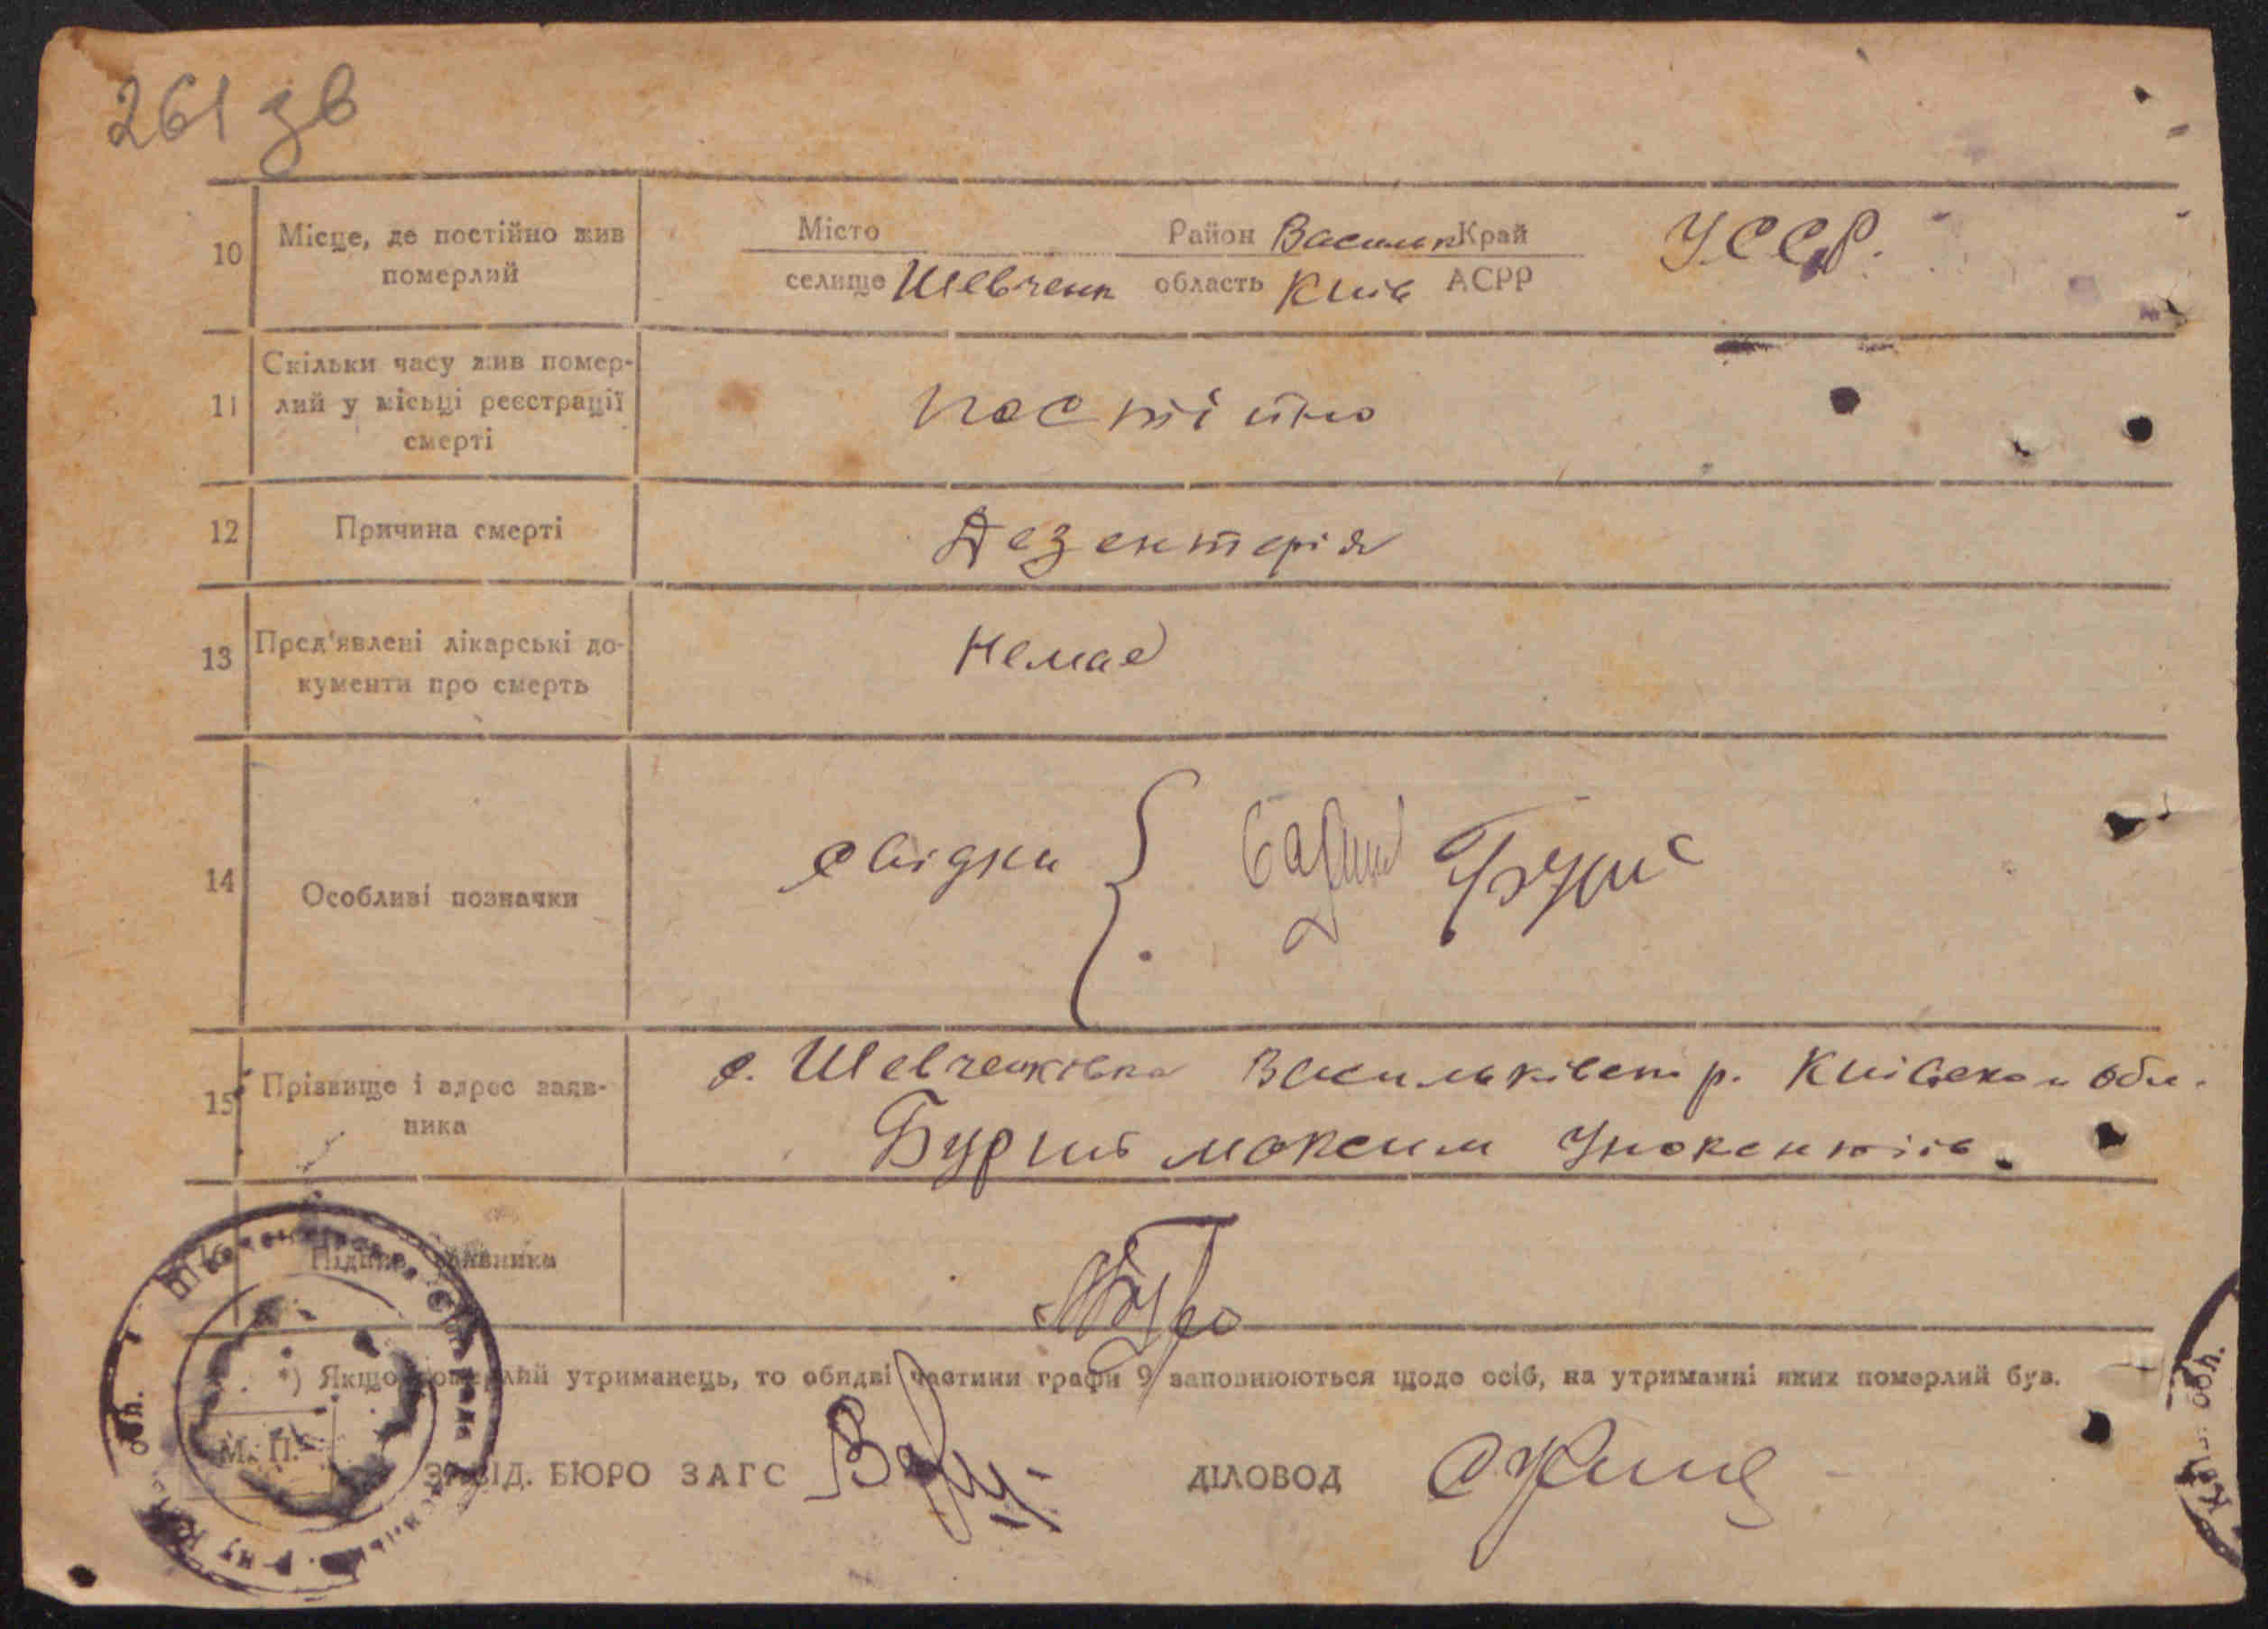 261 зв
10 Місце, де постійно жив померлий
Місто Район Васильк Край УССР.
селище Шевченк область Київ АСРР
11 Скільки часу жив померлий у місьці реєстрації смерті
постійно
12 Причина смерті
Дезентерія
13 Пред'явлені лікарські документи про смерть
Немає
14 Особливі позначки
свідки {
15 Прізвище і адрес заявника
с. Шевченківка Васильківськ р. Київської обл.
Бурлий Максим
16 Підпис заявника
*) Якщо померлий утриманець, то обидві частини графи 9 заповнюються щодо осіб, на утриманні яких померлий був.
М. П.
ЗАВІД. БЮРО ЗАГС ДІЛОВОД